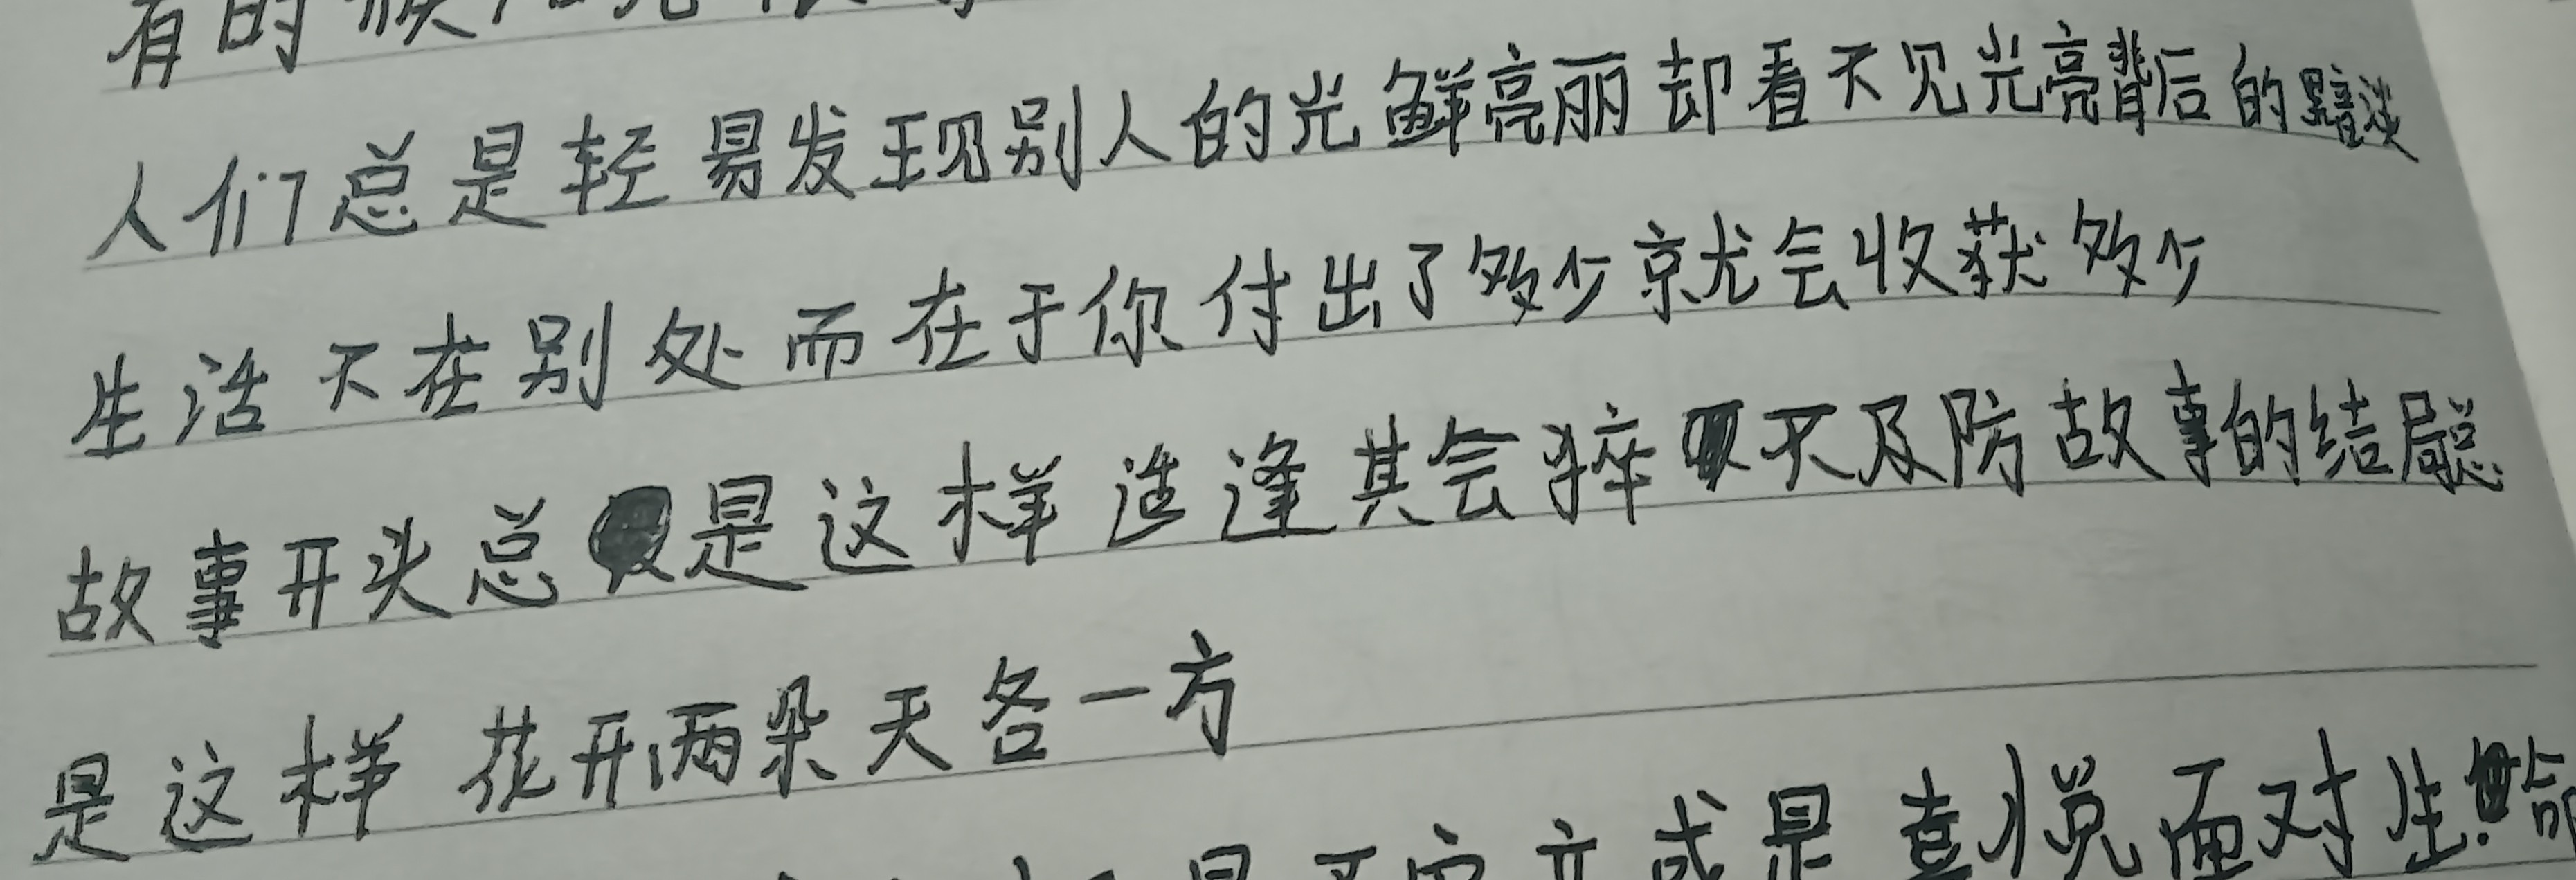 有时候
人们总是轻易发现别人的光鲜亮丽却看不见光亮背后的黯淡
生活不在别处而在于你付出了多少就会收获多少
故事开头总是这样造逢其会猝不及防故事的结局总
是这样 花开两朵天各一方
或是喜悦面对生命